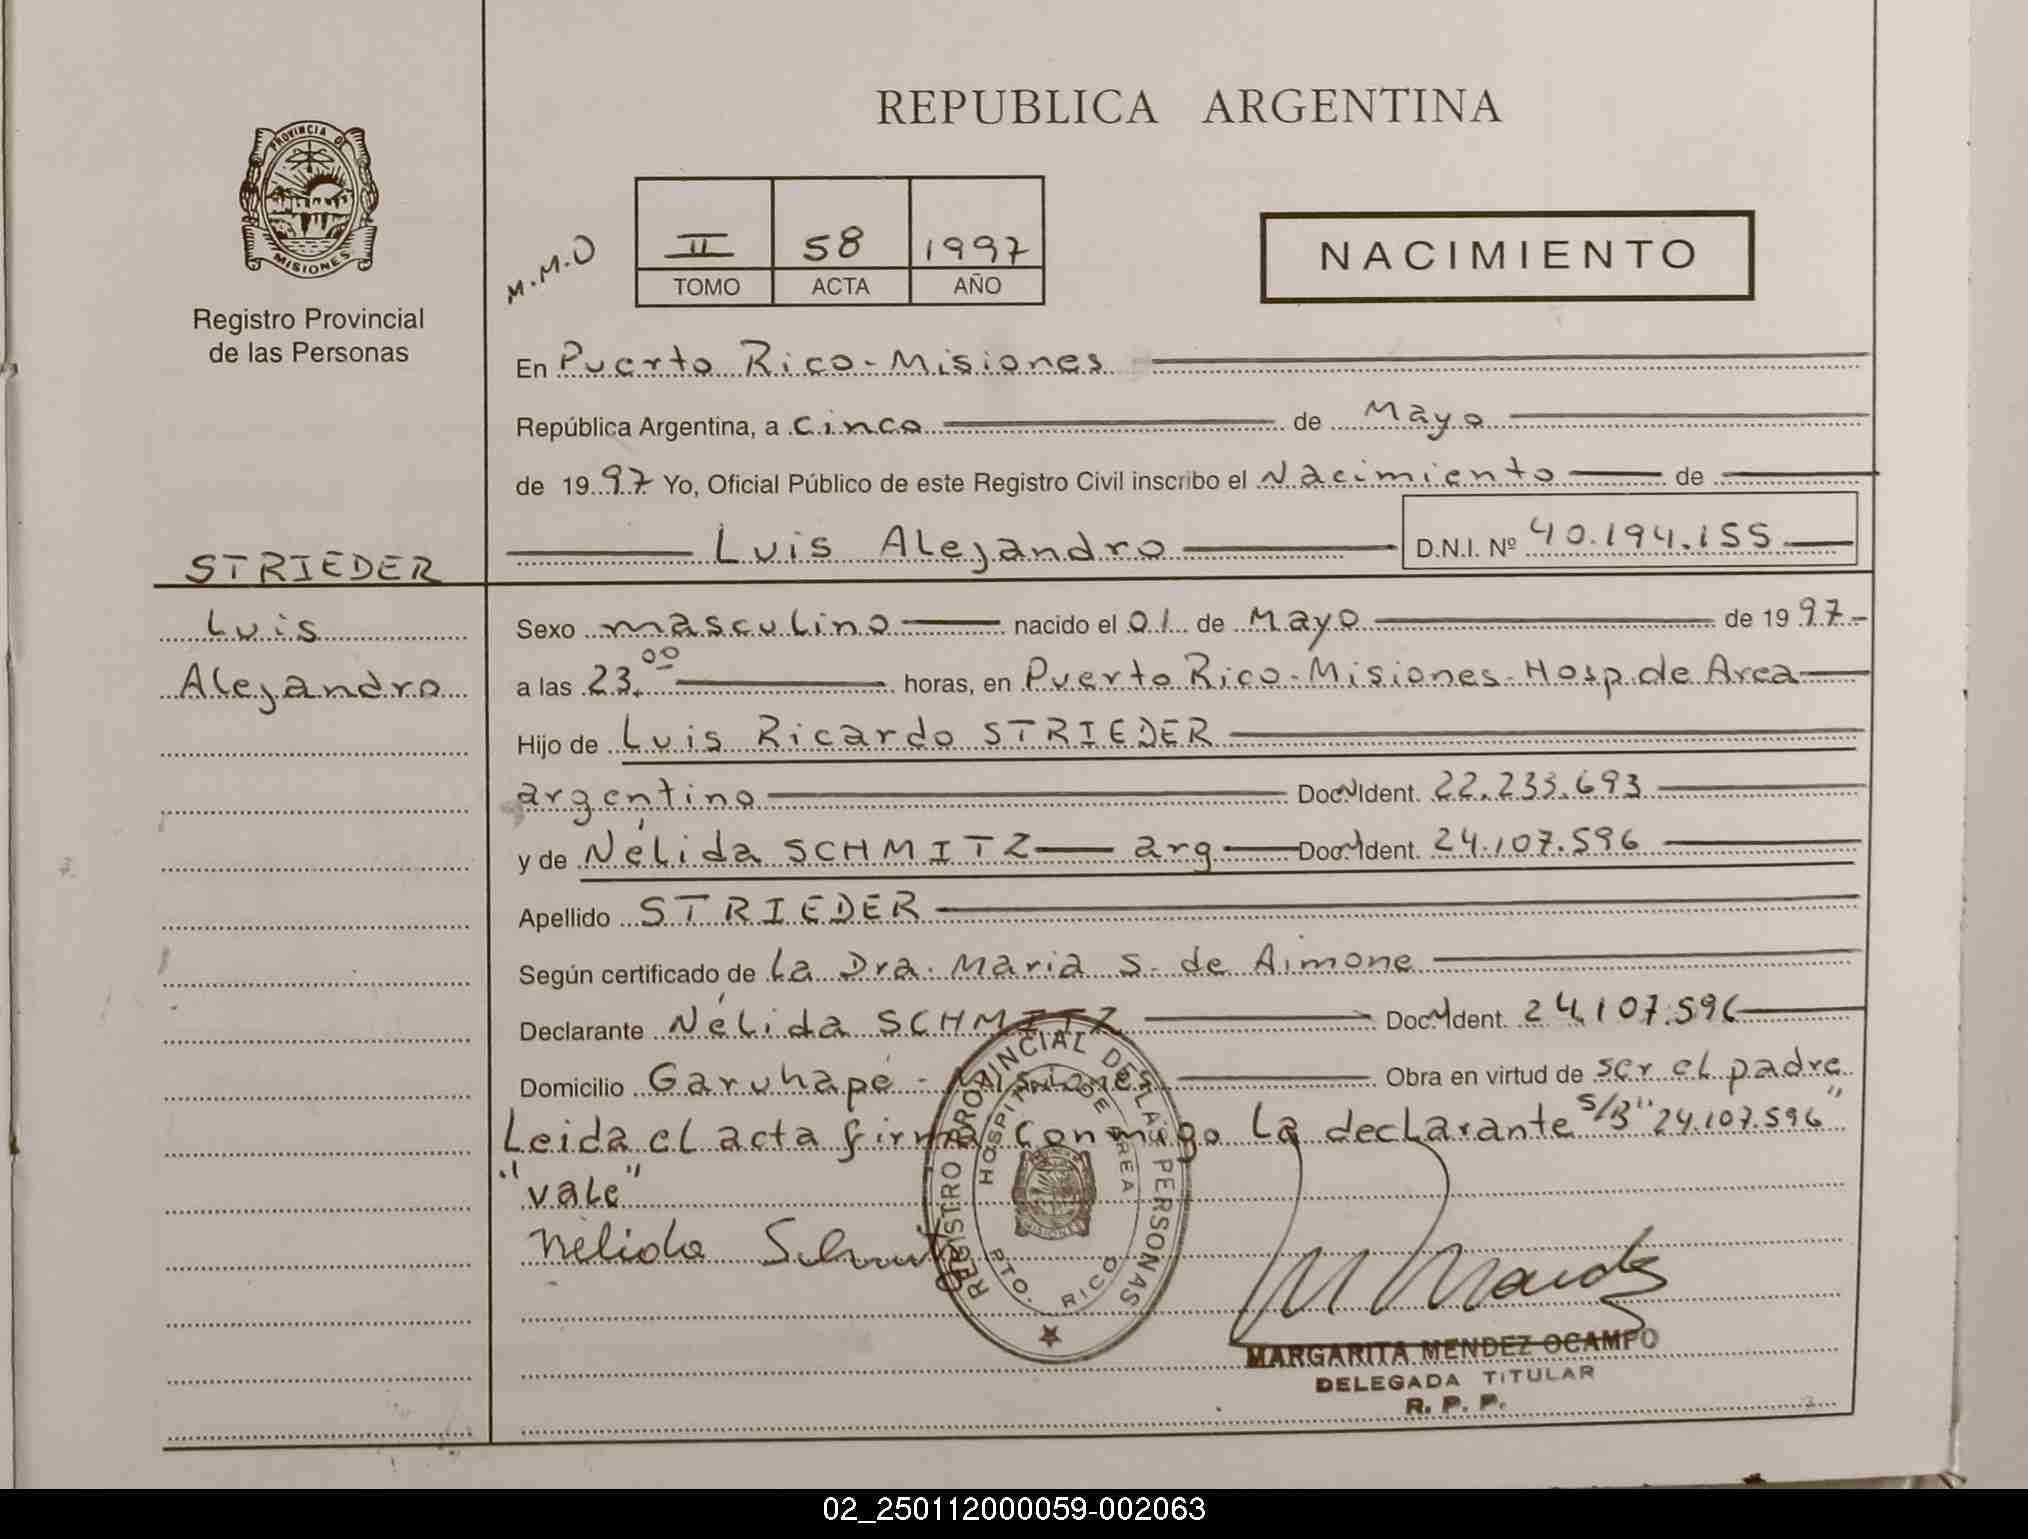 REPUBLICA ARGENTINA
PROVINCIA DE
MISIONES
Registro Provincial
de las Personas
M.M.O
II 58 1997
TOMO ACTA AÑO
NACIMIENTO
En Puerto Rico - Misiones
República Argentina, a cinco de Mayo
de 1997 Yo, Oficial Público de este Registro Civil inscribo el Nacimiento de
Luis Alejandro D.N.I. Nº 40.194.155
STRIEDER
Luis
Alejandro
Sexo masculino nacido el 01 de Mayo de 1997
a las 23.00 horas, en Puerto Rico - Misiones - Hosp. de Area
Hijo de Luis Ricardo STRIEDER
argentino Doc. Ident. 22.233.693
y de Nélida SCHMITZ arg Doc. Ident. 24.107.596
Apellido STRIEDER
Según certificado de la Dra. Maria S. de Aimone
Declarante Nélida SCHMITZ Doc. Ident. 24.107.596
Domicilio Garuhapé - Misiones Obra en virtud de ser el padre
Leida el acta firma conmigo la declarante s/B "24.107.596"
"vale"
Nélida Schmitz
REGISTRO PROVINCIAL DE LAS PERSONAS
HOSPITAL DE AREA
MISIONES
PTO. RICO
M Mendez
MARGARITA MENDEZ OCAMPO
DELEGADA TITULAR
R. P. P.
02_250112000059-002063